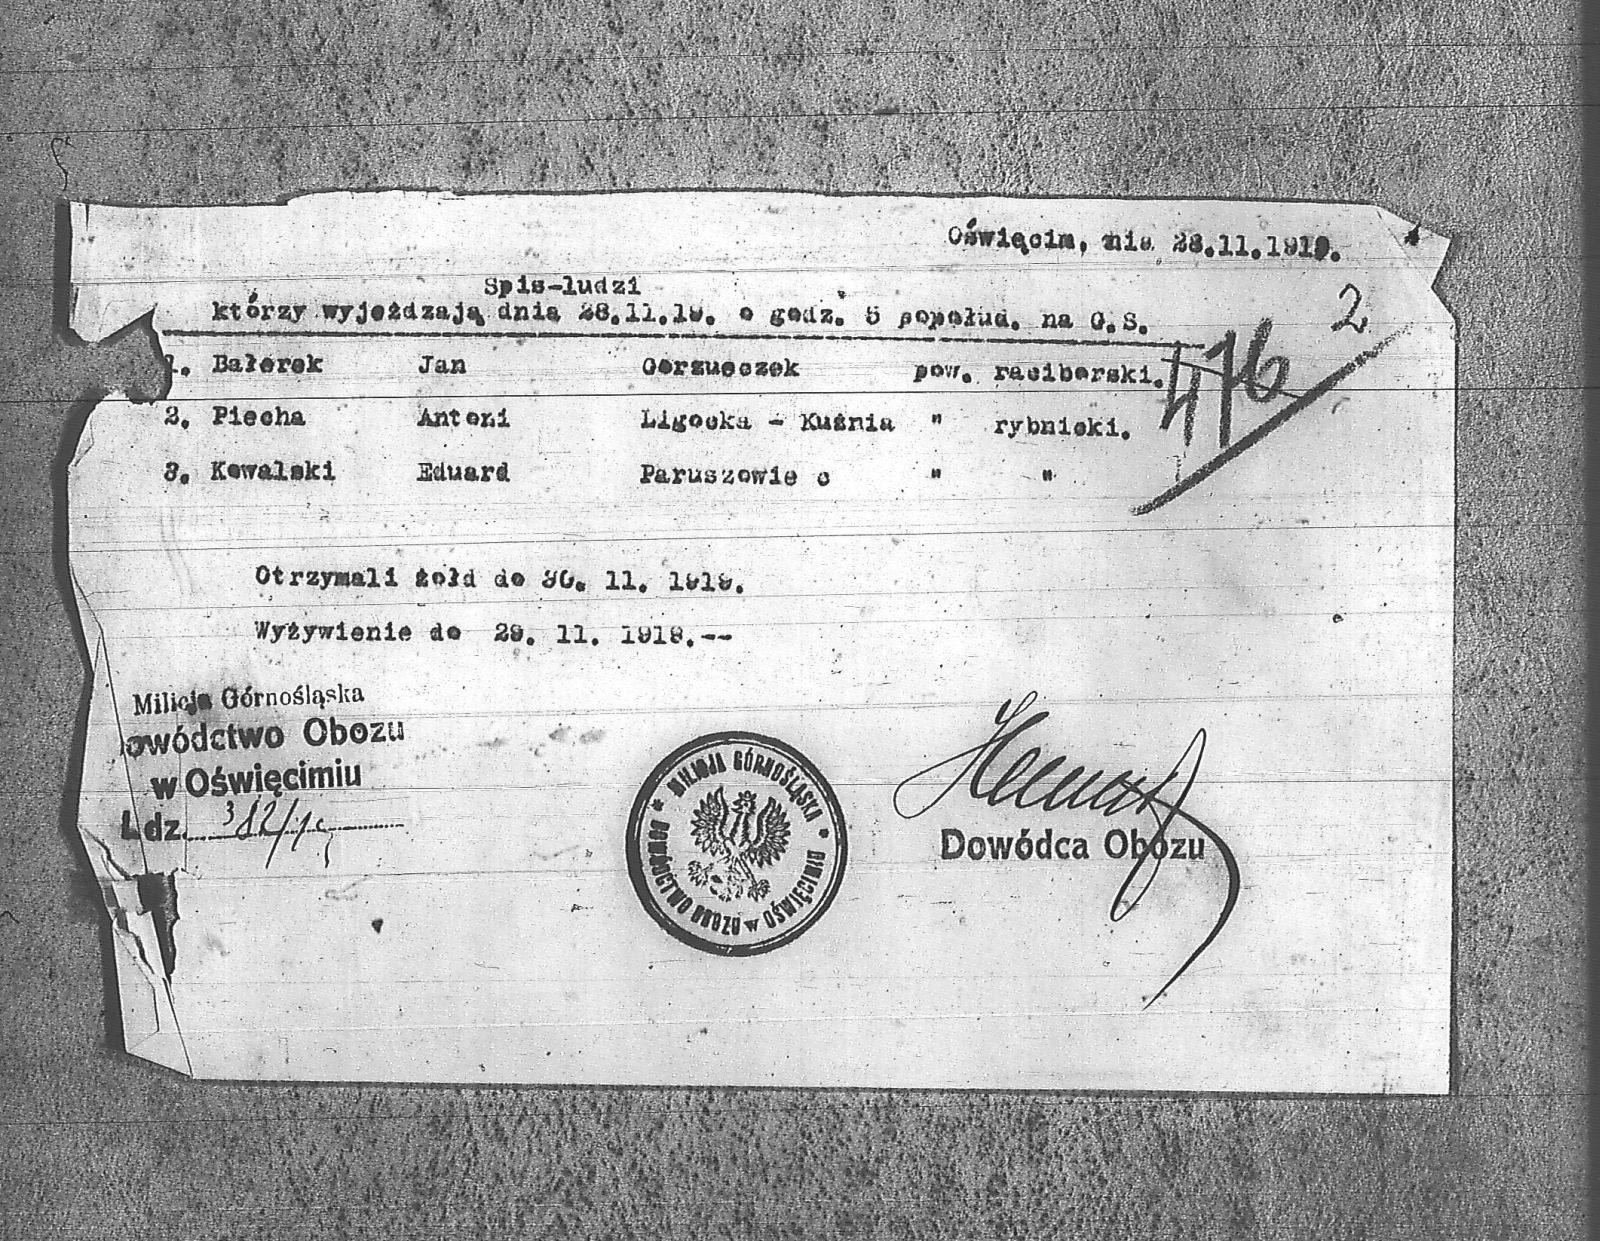 Oświęcim, nia 28.11.1919.
2
Spis-ludzi
którzy wyjeżdzają dnia 28.11.19. o godz. 5 popołud. na G.S.
476
1. Bałerek Jan Gorzueczek pow. raciborski.
2. Piecha Antoni Ligocka - Kuźnia " rybnicki.
3. Kowalski Eduard Paruszowie c " "
Otrzymali żołd do 30. 11. 1919.
Wyżywienie do 29. 11. 1919.--
Milicja Górnośląska
owództwo Obozu
w Oświęcimiu
Ldz. 382/19
* MILICJA GÓRNOŚLĄSKA * DOWÓDCTWO OBOZU w OŚWIĘCIMIU
Dowódca Obozu